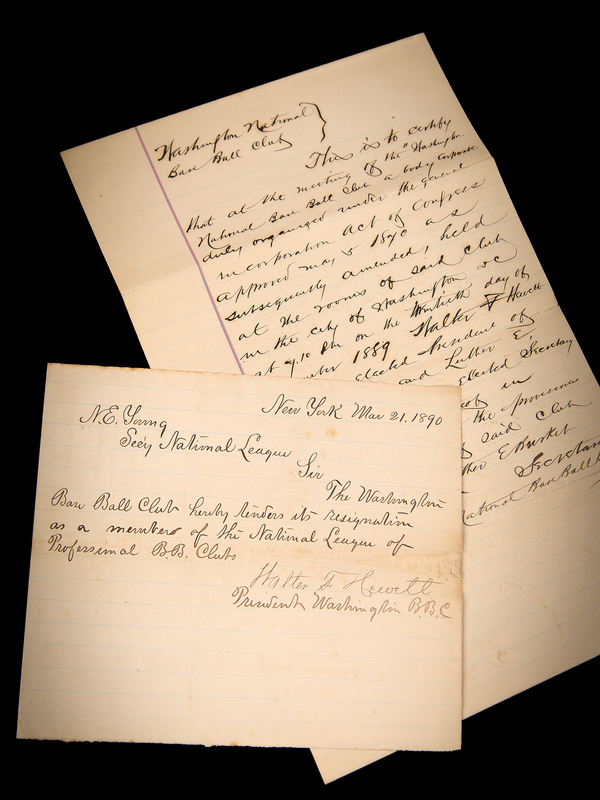 Washington National
Base Ball Club
This is to certify
that at the meeting of the "Washington
National Base Ball Club a body corporate
duly organized under the general
incorporation act of Congress
approved may 5 1870 as
subsequently amended, held
at the rooms of said Club
in the city of Washington DC
at 7.10 P.m on the day of
1889 Walter F Hewett
elected President of
and Luther E.
elected Secretary
in
the provisions
of said Club
Burket
Secretary
National Base Ball
New York Mar 21, 1890
N.E. Young
Secy National League
Sir
The Washington
Base Ball Club hereby tenders its resignation
as a member of the National League of
Professional B.B. Clubs
Walter F Hewett
President Washington B.B.C